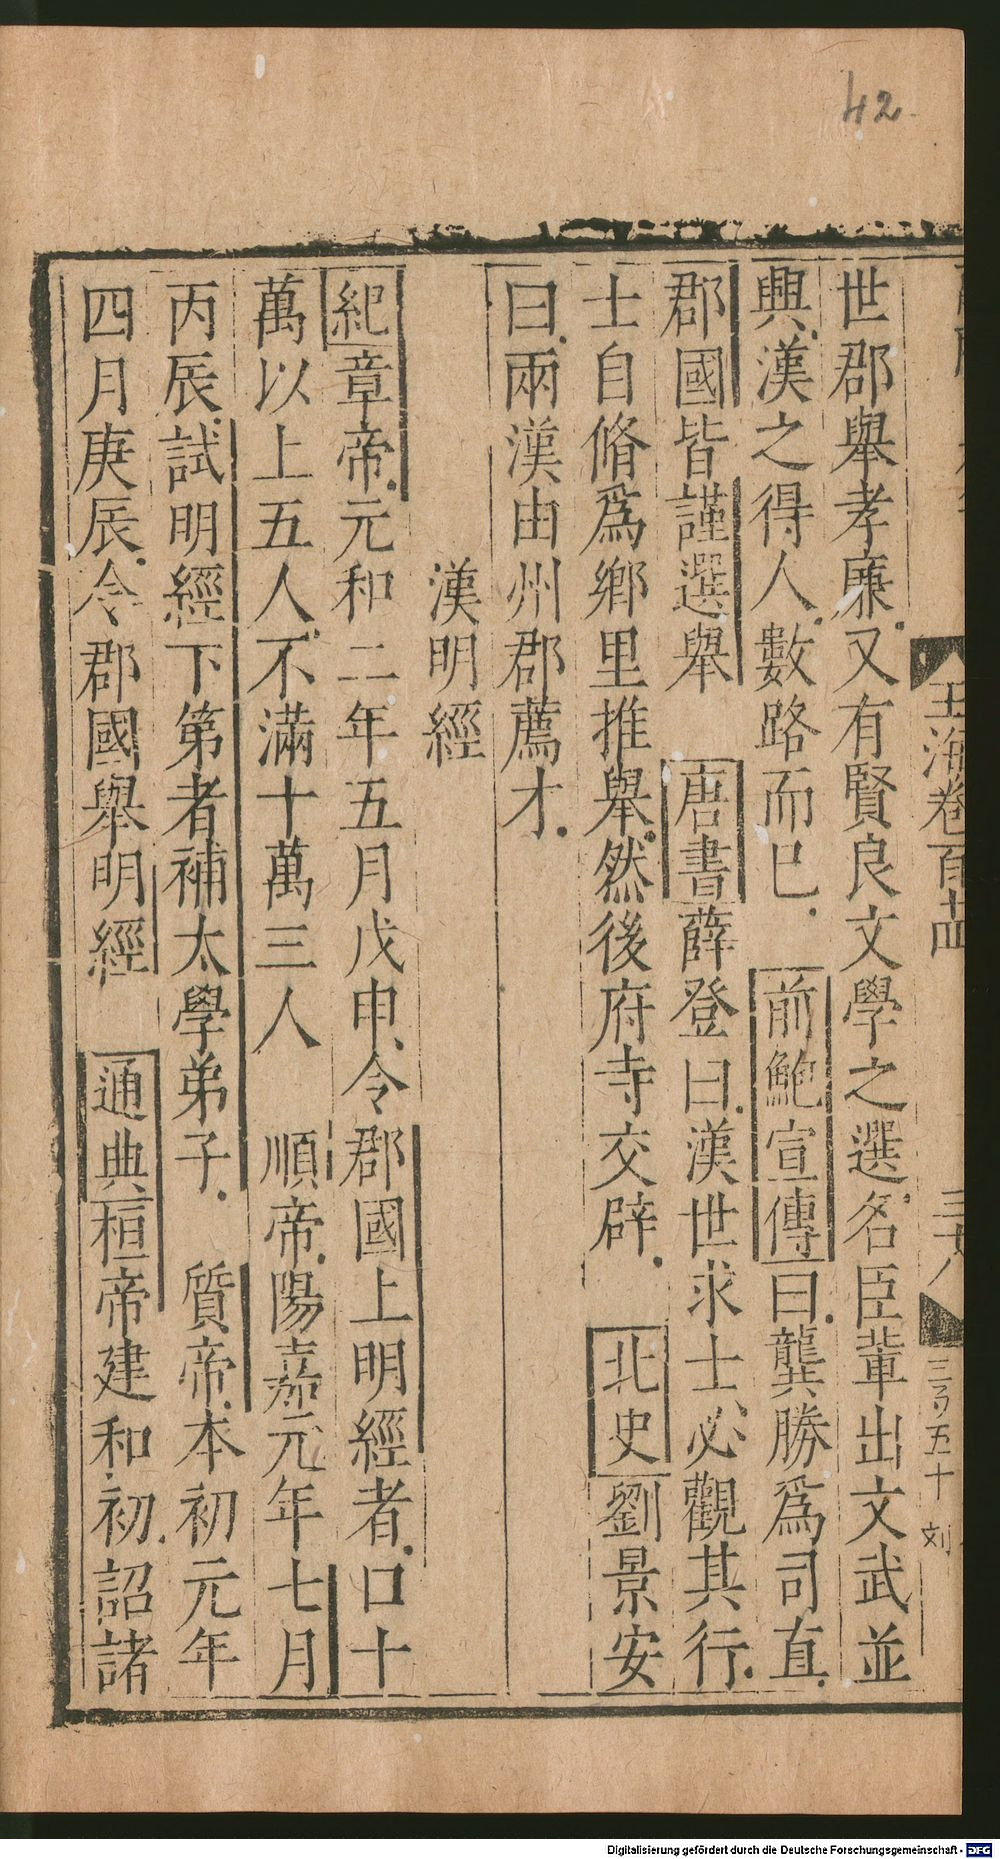 42
玉海卷百
世郡舉孝廉又有賢良文學之選名臣輩出文武並
興漢之得人數路而已 前鮑宣傳曰龔勝爲司直
郡國皆謹選舉 唐書薛登曰漢世求士必觀其行
士自脩爲鄉里推舉然後府寺交辟 北史劉景安
曰兩漢由州郡薦才
漢明經
紀章帝元和二年五月戊申令郡國上明經者口十
萬以上五人不滿十萬三人 順帝陽嘉元年七月
丙辰試明經下第者補太學弟子 質帝本初元年
四月庚辰令郡國舉明經 通典桓帝建和初詔諸
Digitalisierung gefördert durch die Deutsche Forschungsgemeinschaft - DFG